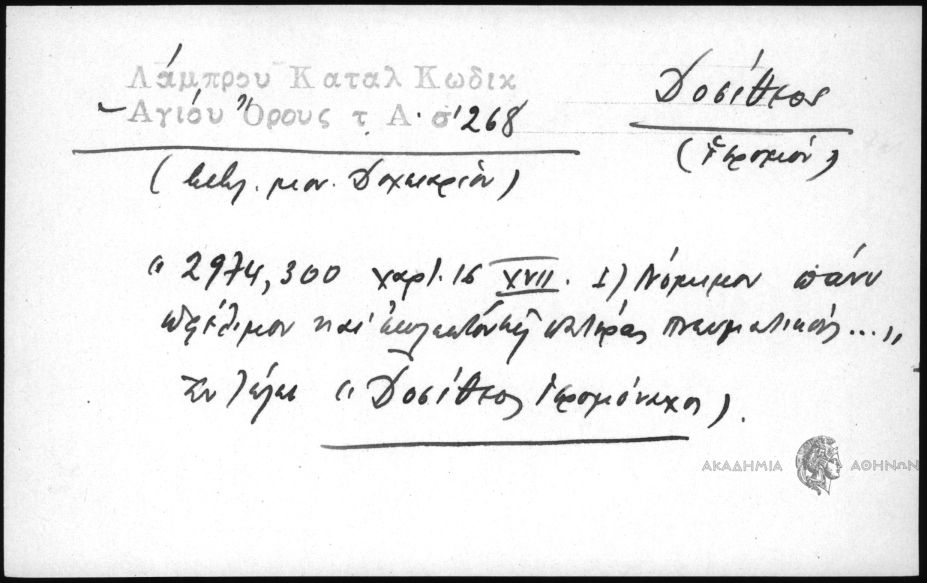 Λάμπρου Καταλ Κωδικ
Αγίου Όρους τ Α. σ 268
Δοσίθεος
(Ἱερομόν)
(Βιβλ. μον. Δοχειαρίου)
"2974,300 χαρτ. 16 XVII. 1) Νόμιμον πάνυ
ὠφέλιμον καὶ πατέρας πνευματικούς...,,
Ἐν τέλει "Δοσίθεος Ἱερομόναχος).
ΑΚΑΔΗΜΙΑ ΑΘΗΝΩΝ